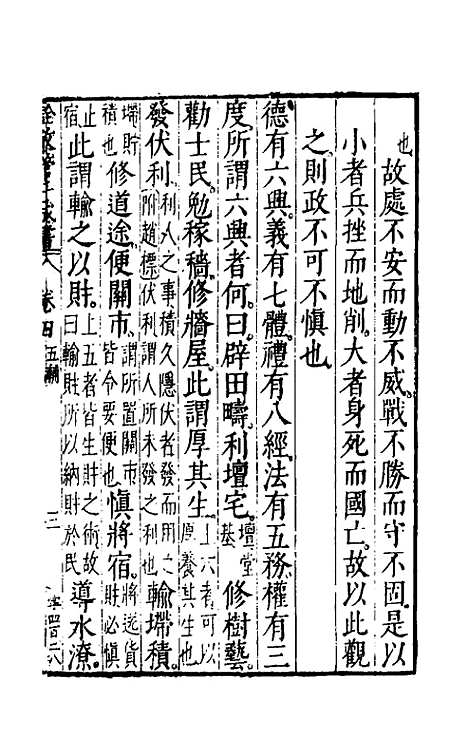 也故處不安而動不威。戰不勝而守不固。是以
小者兵挫而地削。大者身死而國亡。故以此觀
之則政不可不慎也。
德有六興。義有七體。禮有八經。法有五務。權有三
度。所謂六興者何。曰。辟田疇。利壇宅。壇堂基修樹藝。
勸士民。勉稼穡。修牆屋。此謂厚其生。上六者可以厚養其生也
發伏利。利人之事積久隱伏者發而用之附趙標伏利謂人所未發之利也輸墆積。
墆貯積也修道途。便關市。謂所置關市皆令要便也慎將宿。將送貨財必慎
止宿此謂輸之以財。上五者皆生財之術故曰輸財所以納財於民導水潦。
卷四 五輔 三